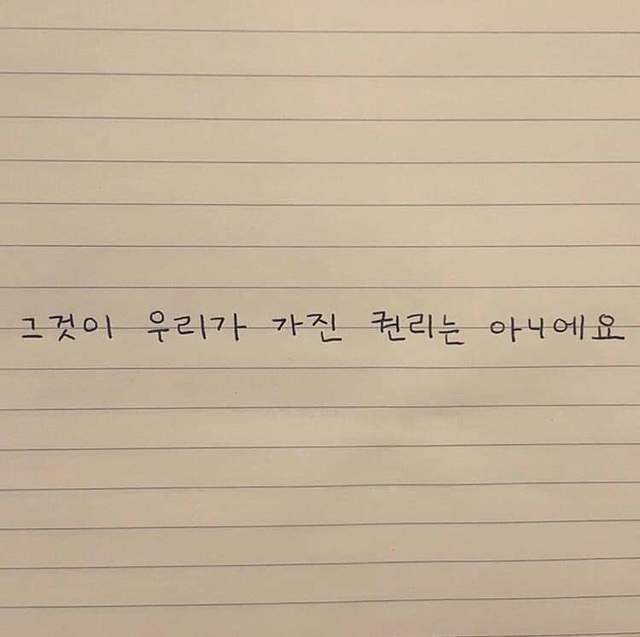 그것이 우리가 가진 권리는 아니에요